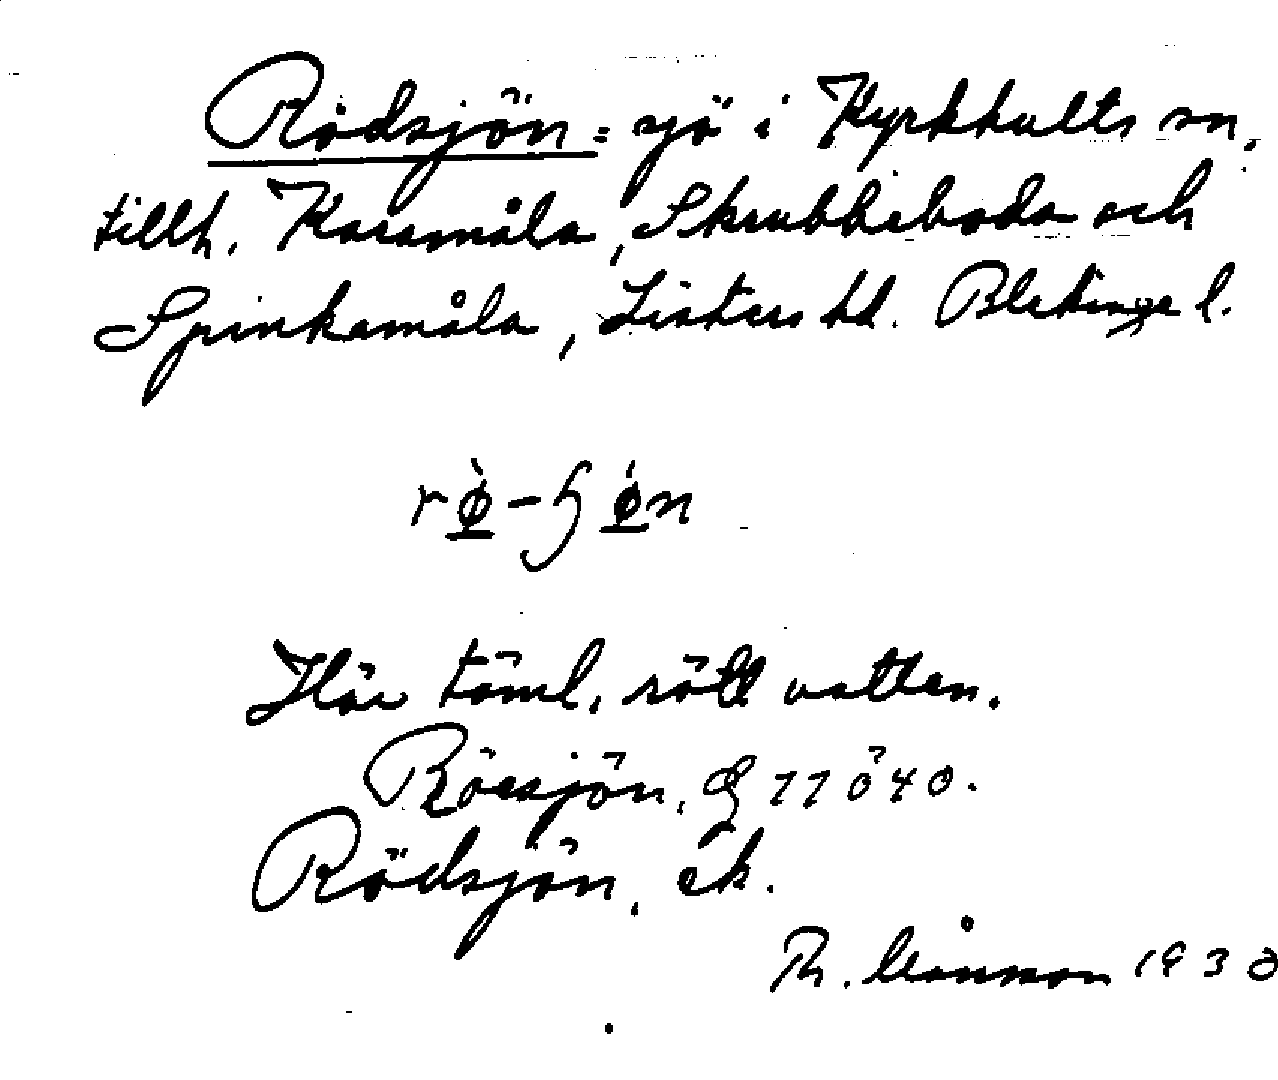 Rödsjön = sjö i Kyrkhults sn.
tillh. Karamåla, Skrubbeboda och
Spinkamåla, Listers hd. Blekinge l.
rø̀-ɧǿn
Har täml. rött vatten.
Rörsjön, G
Rödsjön, ek.
1930